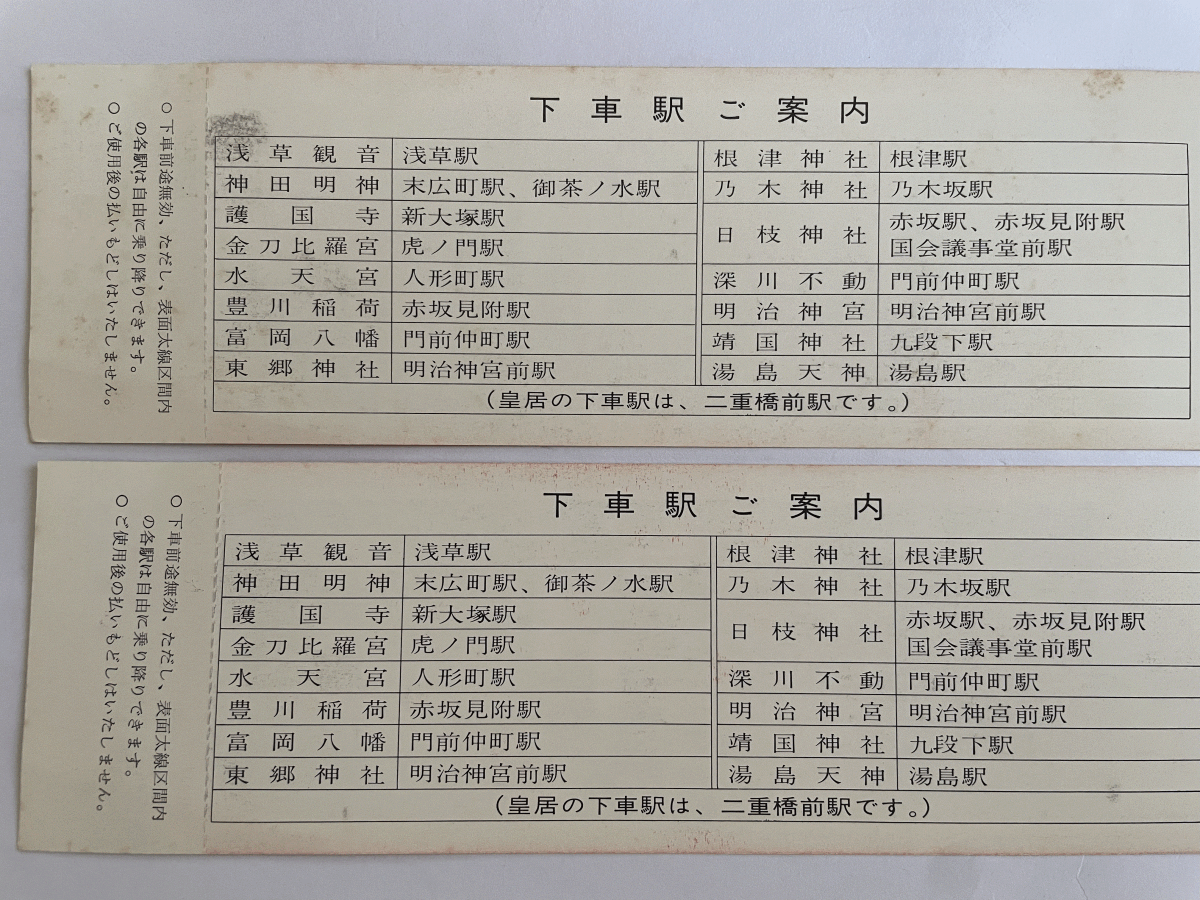 下車駅ご案内
浅草観音 浅草駅
神田明神 末広町駅、御茶ノ水駅
護国寺 新大塚駅
金刀比羅宮 虎ノ門駅
水天宮 人形町駅
豊川稲荷 赤坂見附駅
富岡八幡 門前仲町駅
東郷神社 明治神宮前駅
根津神社 根津駅
乃木神社 乃木坂駅
日枝神社 赤坂駅、赤坂見附駅
国会議事堂前駅
深川不動 門前仲町駅
明治神宮 明治神宮前駅
靖国神社 九段下駅
湯島天神 湯島駅
(皇居の下車駅は、二重橋前駅です。)
○下車前途無効、ただし、表面太線区間内
の各駅は自由に乗り降りできます。
○ご使用後の払いもどしはいたしません。
下車駅ご案内
浅草観音 浅草駅
神田明神 末広町駅、御茶ノ水駅
護国寺 新大塚駅
金刀比羅宮 虎ノ門駅
水天宮 人形町駅
豊川稲荷 赤坂見附駅
富岡八幡 門前仲町駅
東郷神社 明治神宮前駅
根津神社 根津駅
乃木神社 乃木坂駅
日枝神社 赤坂駅、赤坂見附駅
国会議事堂前駅
深川不動 門前仲町駅
明治神宮 明治神宮前駅
靖国神社 九段下駅
湯島天神 湯島駅
(皇居の下車駅は、二重橋前駅です。)
○下車前途無効、ただし、表面太線区間内
の各駅は自由に乗り降りできます。
○ご使用後の払いもどしはいたしません。